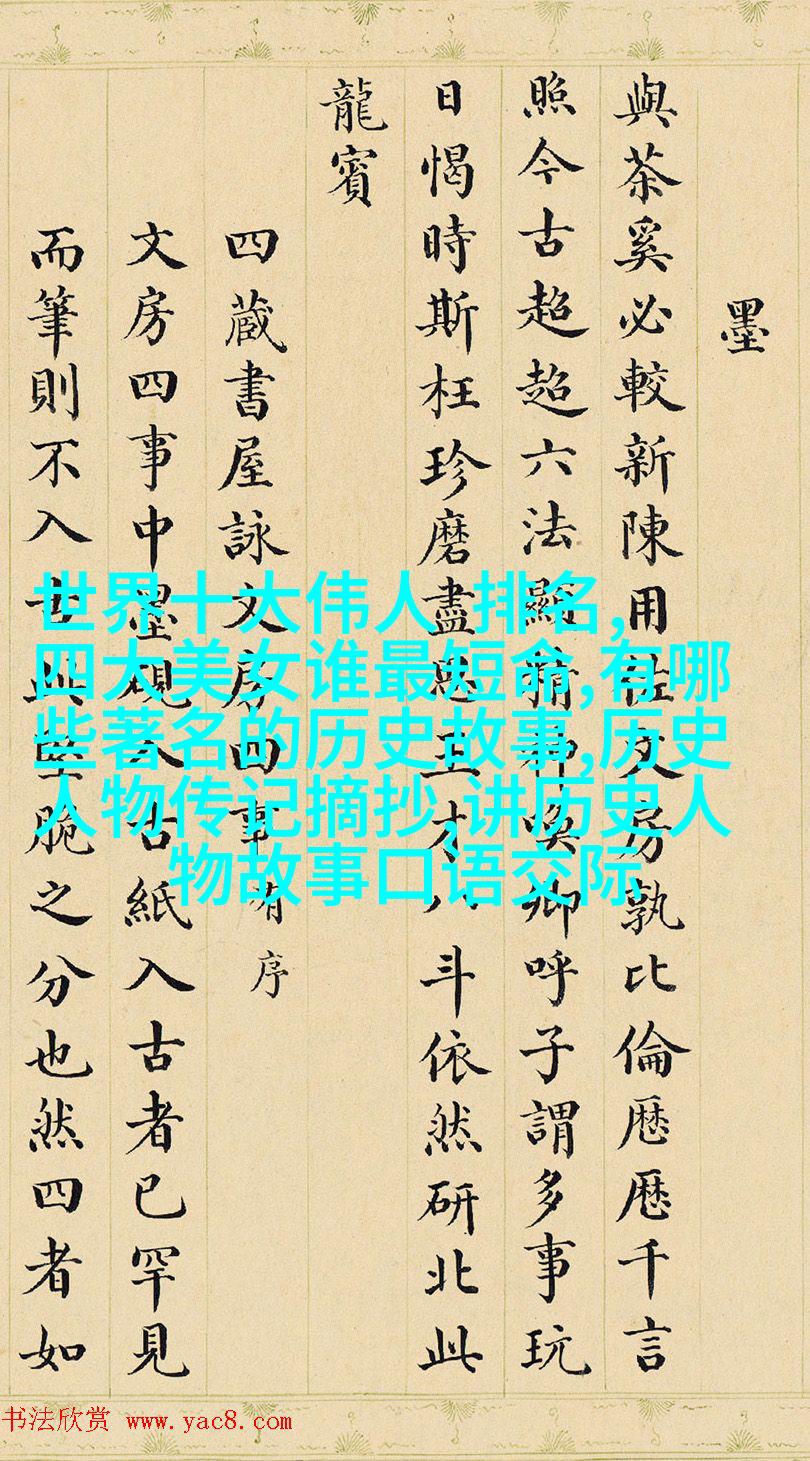 墨
與茶奚必較新陳用佐文房孰比倫歷歷千言
照今古超超六法顯精神喚卿呼子謂多事玩
日愒時斯枉珍磨盡思王才八斗依然研北此
龍賓
四蔵書屋詠文房四事有序
文房四事中墨硯入古紙入古者已罕見
而筆則不入古此堅脆之分也然四者如
世界十大伟人 排名,
四大美女谁最短命,有哪
些著名的历史故事,历史
人物传记摘抄,讲历史人
物故事口语交际
书法欣赏 www.yac8.com